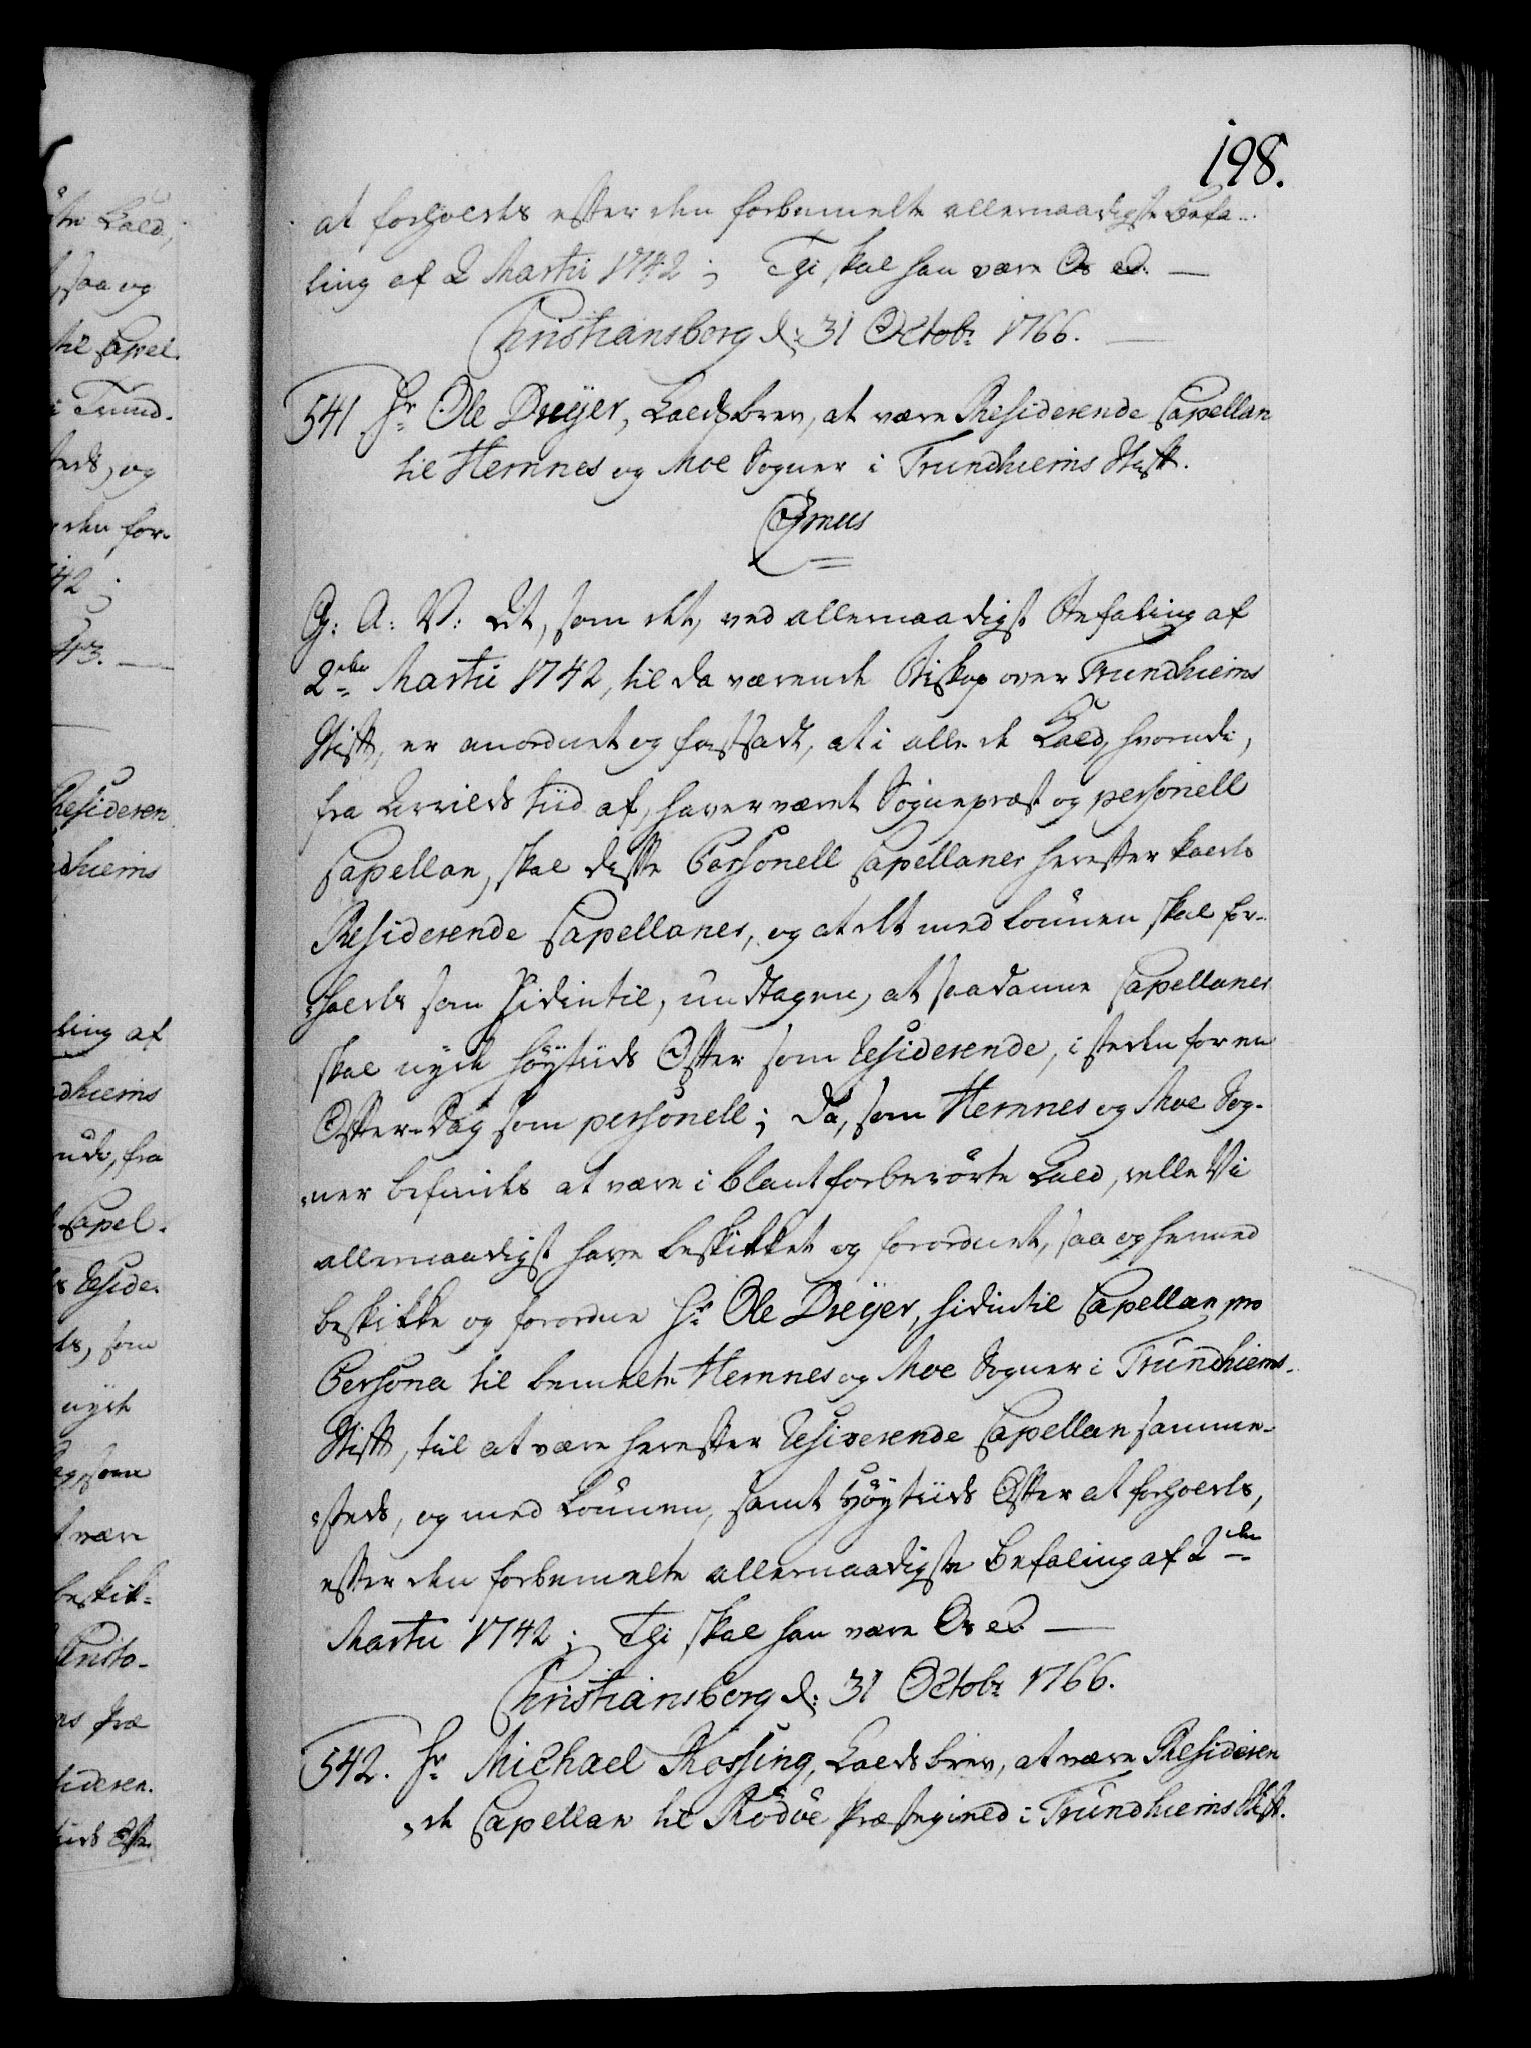 198.
at forholdes efter den forbemelte allernaadigste Befa-
ling af 2 Martii 1742; Thi skal han være Os etc.
Christiansborg d: 31 Octobr 1766.
541 Hr Ole Dreÿer, Kaldsbrev, at være Residerende Capellan
til Hemnes og Moe Sogner i Trundhiems Stift.
C7mus
G: A: V: At, som det, ved allernaadigst Befaling af
2den Martii 1742, til da værende Biskop over Trundhiems
Stift, er anordnet og fastsadt, at i alle de Kald, hvorudi,
fra Arrilds tiid af, haver været Sognepræst og personell
Capellan, skal disse Personell Capellaner herefter kaldes
Residerende Capellaner, og at det med Lønnen skal for-
holdes som hidintil, undtagen, at saadanne Capellaner
skal nyde Høytiids Offer som residerende, i steden for en
Offer-Dag som personell; Da, som Hemnes og Moe Sog-
ner befindes at være i blant forberørte Kald, ville Vi
allernaadigst have beskikket og forordnet, saa og hermed
beskikke og forordne Hr Ole Dreÿer, hidintil Capellan pro
Persona til bemelte Hemnes og Moe Sogner i Trundhiems
Stift, til at være herefter Residerende Capellan samme-
steds, og med Lønnen, samt Høytiids Offer at forholdes,
efter den forbemelte allernaadigste Befaling af 2den
Martii 1742; Thi skal han være Os etc.
Christiansborg d: 31 Octobr 1766.
542. Hr Michael Rossing, Kaldsbrev, at være Resideren
de Capellan til Rödöe Præstegield i Trundhiems Stift.